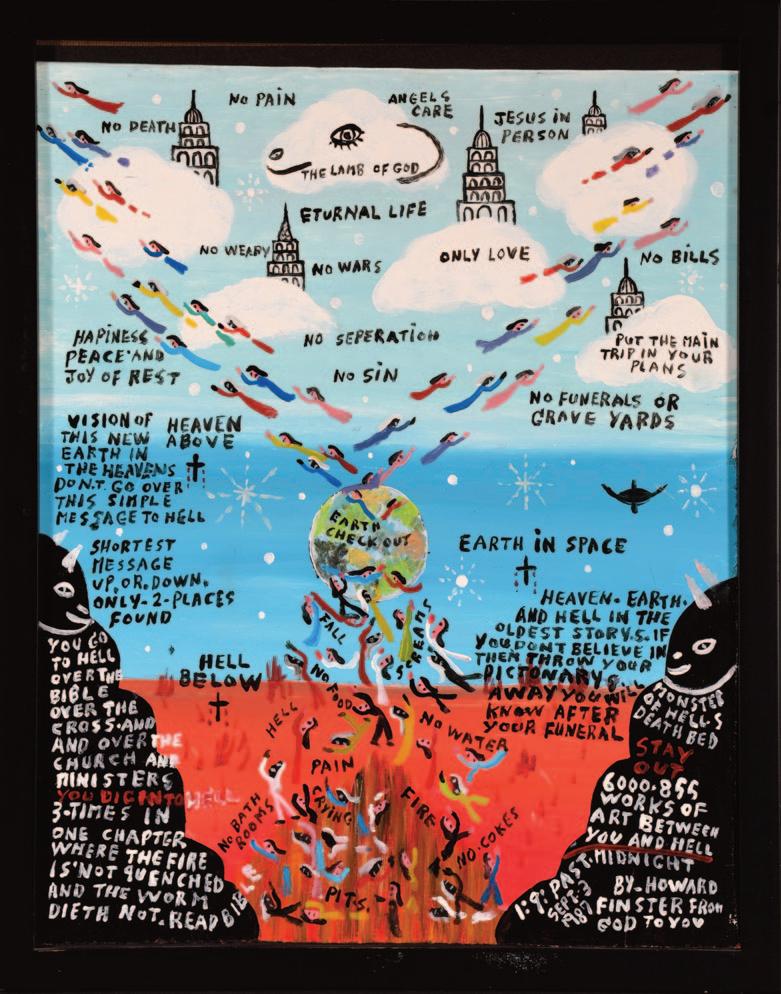 NO PAIN
ANGELS
CARE
NO DEATH
JESUS IN
PERSON
THE LAMB OF GOD
ETURNAL LIFE
NO WEARY
NO WARS
ONLY LOVE
NO BILLS
HAPINESS
PEACE AND
JOY OF REST
NO SEPERATION
NO SIN
PUT THE MAIN
TRIP IN YOUR
PLANS
NO FUNERALS OR
GRAVE YARDS
VISION OF
THIS NEW
EARTH IN
THE HEAVENS
DON.T. GO OVER
THIS SIMPLE
MESSAGE TO HELL
HEAVEN
ABOVE
EARTH
CHECK OUT
SHORTEST
MESSAGE
UP. OR. DOWN.
ONLY-2-PLACES
FOUND
EARTH IN SPACE
HEAVEN. EARTH.
AND HELL IN THE
OLDEST STORY.S. IF
YOU DONT BELIEVE IN
THEM THROW YOUR
DICTONARY.S
AWAY YOU WILL
KNOW AFTER
YOUR FUNERAL
FALL
SCREAMS
HELL
BELOW
YOU GO
TO HELL
OVER THE
BIBLE
OVER THE
CROSS. AND
AND OVER THE
CHURCH AND
MINISTERS
YOU DIG INTO HELL
3-TIMES IN
ONE CHAPTER
WHERE THE FIRE
IS NOT QUENCHED
AND THE WORM
DIETH NOT. READ BIBLE
NO FOOD
HELL
NO WATER
PAIN
CRYING
FIRE
NO BATH
ROOMS
NO. COKES
PITS.
MONSTER
OF HELL.S
DEATH BED
STAY
OUT
6000.855
WORKS OF
ART BETWEEN
YOU AND HELL
MIDNIGHT
1:9: PAST
SEPT-3
1987
BY-HOWARD
FINSTER FROM
GOD TO YOU